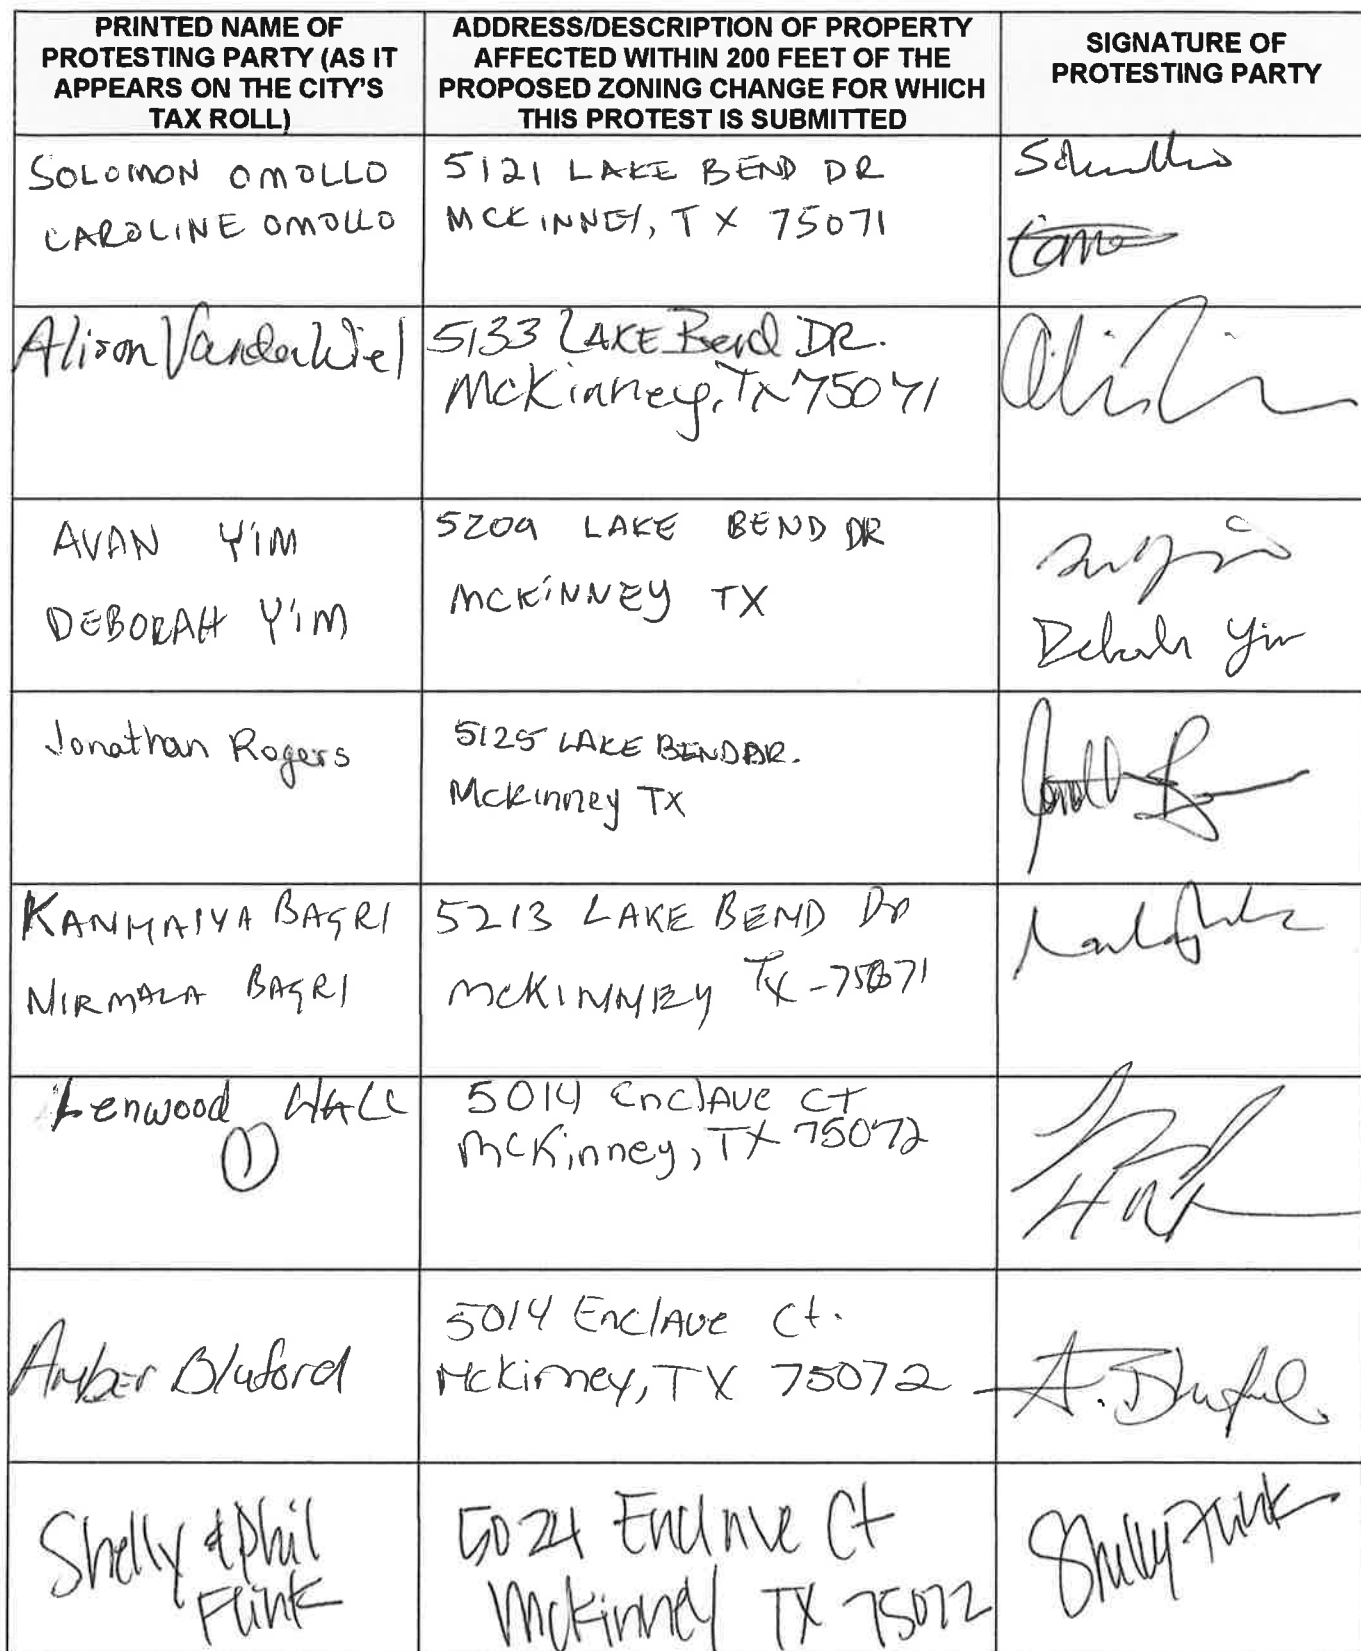 PRINTED NAME OF
PROTESTING PARTY (AS IT
APPEARS ON THE CITY'S
TAX ROLL)
ADDRESS/DESCRIPTION OF PROPERTY
AFFECTED WITHIN 200 FEET OF THE
PROPOSED ZONING CHANGE FOR WHICH
THIS PROTEST IS SUBMITTED
SIGNATURE OF
PROTESTING PARTY
SOLOMON OMOLLO
CAROLINE OMOLLO
5121 LAKE BEND DR
MCKINNEY, TX 75071
Alison VanderWiel
5133 LAKE Bend DR.
McKinney, Tx 75071
AVAN YIM
DEBORAH YIM
5209 LAKE BEND DR
MCKINNEY TX
Deborah Yim
Jonathan Rogers
5125 LAKE BEND DR.
McKinney TX
KANHAIYA BAGRI
NIRMALA BAGRI
5213 LAKE BEND Dr
McKINNEY TX -75071
Lenwood HALL
1
5014 EnclAve CT
McKinney, TX 75072
Amber Bluford
5014 EnclAve Ct.
McKinney, TX 75072
A. Bluford
Shelly & Phil
Flink
5024 Enclave Ct
McKinney TX 75072
Shelly Flink